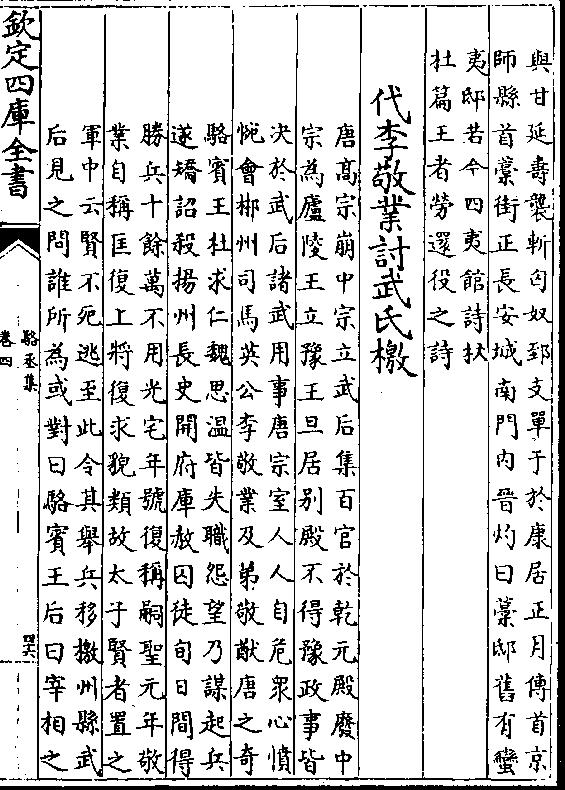 與甘延壽襲斬匈奴郅支單于於康居正月傳首京
師縣首藁街正長安城南門内晉灼曰藁邸舊有蠻
夷邸若今四夷館詩杕
杜篇王者勞還役之詩
代李敬業討武氏檄
唐髙宗崩中宗立武后集百官於乾元殿廢中
宗為廬陵王立豫王旦居别殿不得豫政事皆
決於武后諸武用事唐宗室人人自危衆心憤
惋會郴州司馬英公李敬業及弟敬猷唐之奇
駱賓王杜求仁魏思温皆失職怨望乃謀起兵
遂矯詔殺揚州長史開府庫赦囚徒旬日間得
勝兵十餘萬不用光宅年號復稱嗣聖元年敬
業自稱匡復上將復求貌類故太子賢者置之
軍中云賢不死逃至此令其舉兵移檄州縣武
后見之問誰所為或對曰駱賓王后曰宰相之
欽定四庫全書
駱丞集
卷四